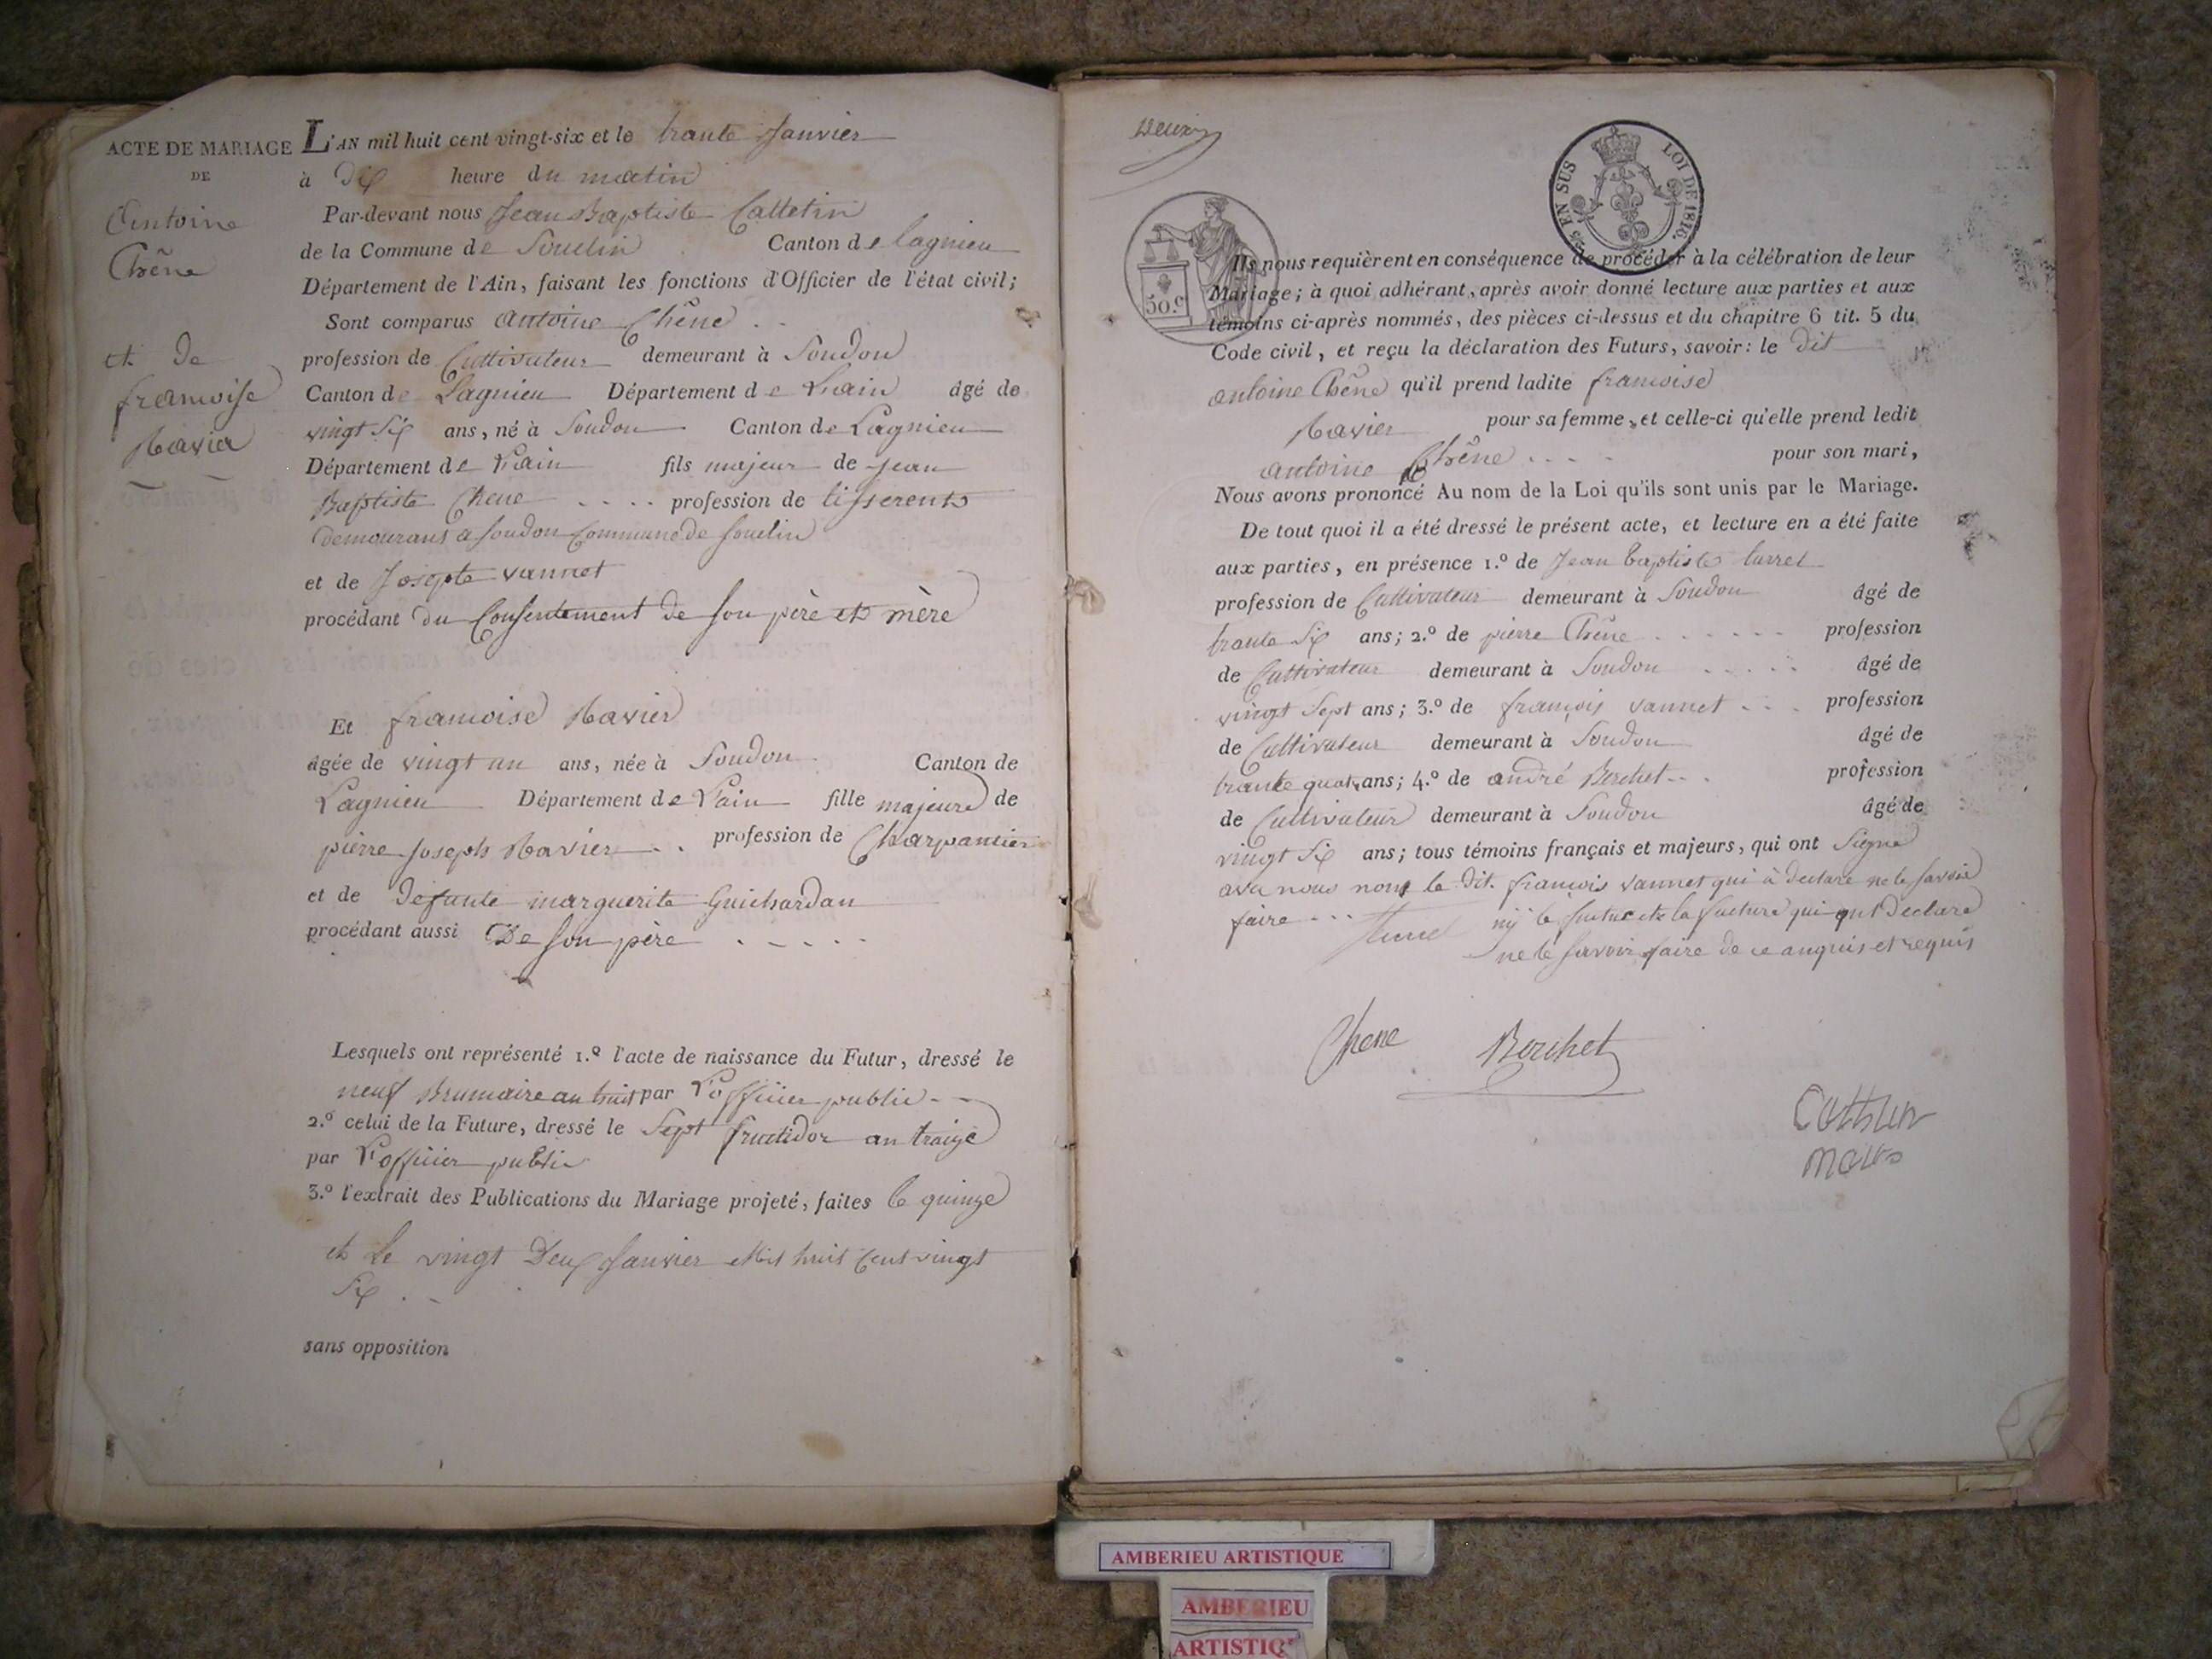 ACTE DE MARIAGE
DE
Antoine
Chêne
et de
francoise
Ravier
L'AN mil huit cent vingt-six et le trante Janvier
à dix heure du matin
Par-devant nous Jean Baptiste Cattetin
de la Commune de Souclin Canton de lagnieu
Département de l'Ain, faisant les fonctions d'Officier de l'état civil;
Sont comparus antoine Chêne
profession de Cultivateur demeurant à Soudon
Canton de Lagnieu Département de Lain âgé de
vingt Six ans, né à Soudon Canton de Lagnieu
Département de Lain fils majeur de jean
Baptiste Chene profession de tisserent
demeurans a soudon Commune de souclin
et de Josepte vannet
procédant du Consentement de son père et mère
Et francoise Ravier
âgée de vingt un ans, née à Soudon Canton de
Lagnieu Département de Lain fille majeure de
pierre joseph Ravier profession de Charpantier
et de défunte marguerite Guichardan
procédant aussi De son père
Lesquels ont représenté 1.º l'acte de naissance du Futur, dressé le
neuf Brumaire an huit par Lofficier public
2.º celui de la Future, dressé le Sept fructidor an traize
par Lofficier public
3.º l'extrait des Publications du Mariage projeté, faites le quinze
et Le vingt Deux Janvier Mil huit Cent vingt
Six
sans opposition
Deux
5 EN SUS LOI DE 1816.
50.c
Ils nous requièrent en conséquence de procéder à la célébration de leur
Mariage; à quoi adhérant, après avoir donné lecture aux parties et aux
témoins ci-après nommés, des pièces ci-dessus et du chapitre 6 tit. 5 du
Code civil, et reçu la déclaration des Futurs, savoir: le dit
antoine Chêne qu'il prend ladite francoise
Ravier pour sa femme, et celle-ci qu'elle prend ledit
antoine Chêne pour son mari,
Nous avons prononcé Au nom de la Loi qu'ils sont unis par le Mariage.
De tout quoi il a été dressé le présent acte, et lecture en a été faite
aux parties, en présence 1.º de Jean baptiste turrel
profession de Cultivateur demeurant à Soudon âgé de
trante Six ans; 2.º de pierre Chêne profession
de Cultivateur demeurant à Soudon âgé de
vingt Sept ans; 3.º de françois vannet profession
de Cultivateur demeurant à Soudon âgé de
trante quatre ans; 4.º de andré Berchet profession
de Cultivateur demeurant à Soudon âgé de
vingt Six ans; tous témoins français et majeurs, qui ont Signé
avec nous non le dit. francois vannet qui à declaré ne le savoir
faire nÿ le futur et la future qui ont declaré
turrel ne le savoir faire de ce anquis et requis
Chene Berchet
Cattetin
maire
AMBERIEU ARTISTIQUE
AMBERIEU
ARTISTIQ